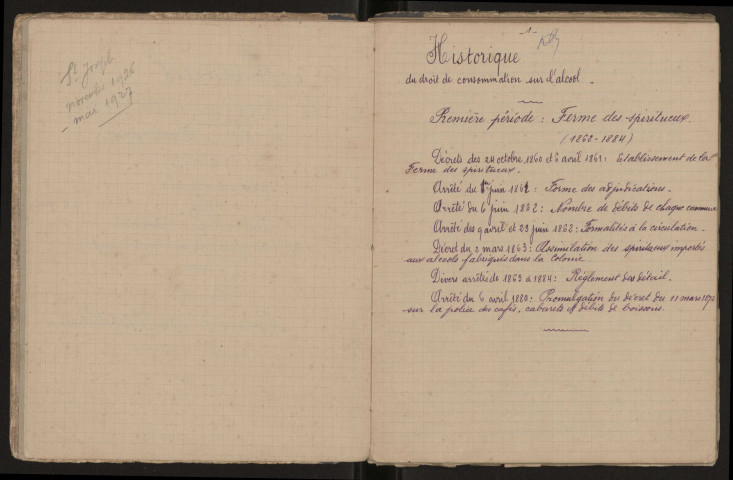 St Joseph
novembre 1926
- mai 1927
-1-
Historique
du droit de consommation sur l'alcool.
Première période : Ferme des spiritueux.
(1862-1884)
Décrets des 24 octobre 1860 et 6 avril 1861 : Etablissement de la
Ferme des spiritueux.
Arrêté du 1er juin 1862 : Forme des adjudications.
Arrêté du 6 juin 1862 : Nombre de débits de chaque commune
Arrêté des 9 avril et 23 juin 1862 : Formalités à la circulation.
Décret du 2 mars 1863 : Assimilation des spiritueux importés
aux alcools fabriqués dans la colonie
Divers arrêtés de 1863 à 1884 : Règlement des détail.
Arrêté du 6 avril 1880 : Promulgation du décret du 11 mars 1872
sur la police des cafés, cabarets et débits de boissons.